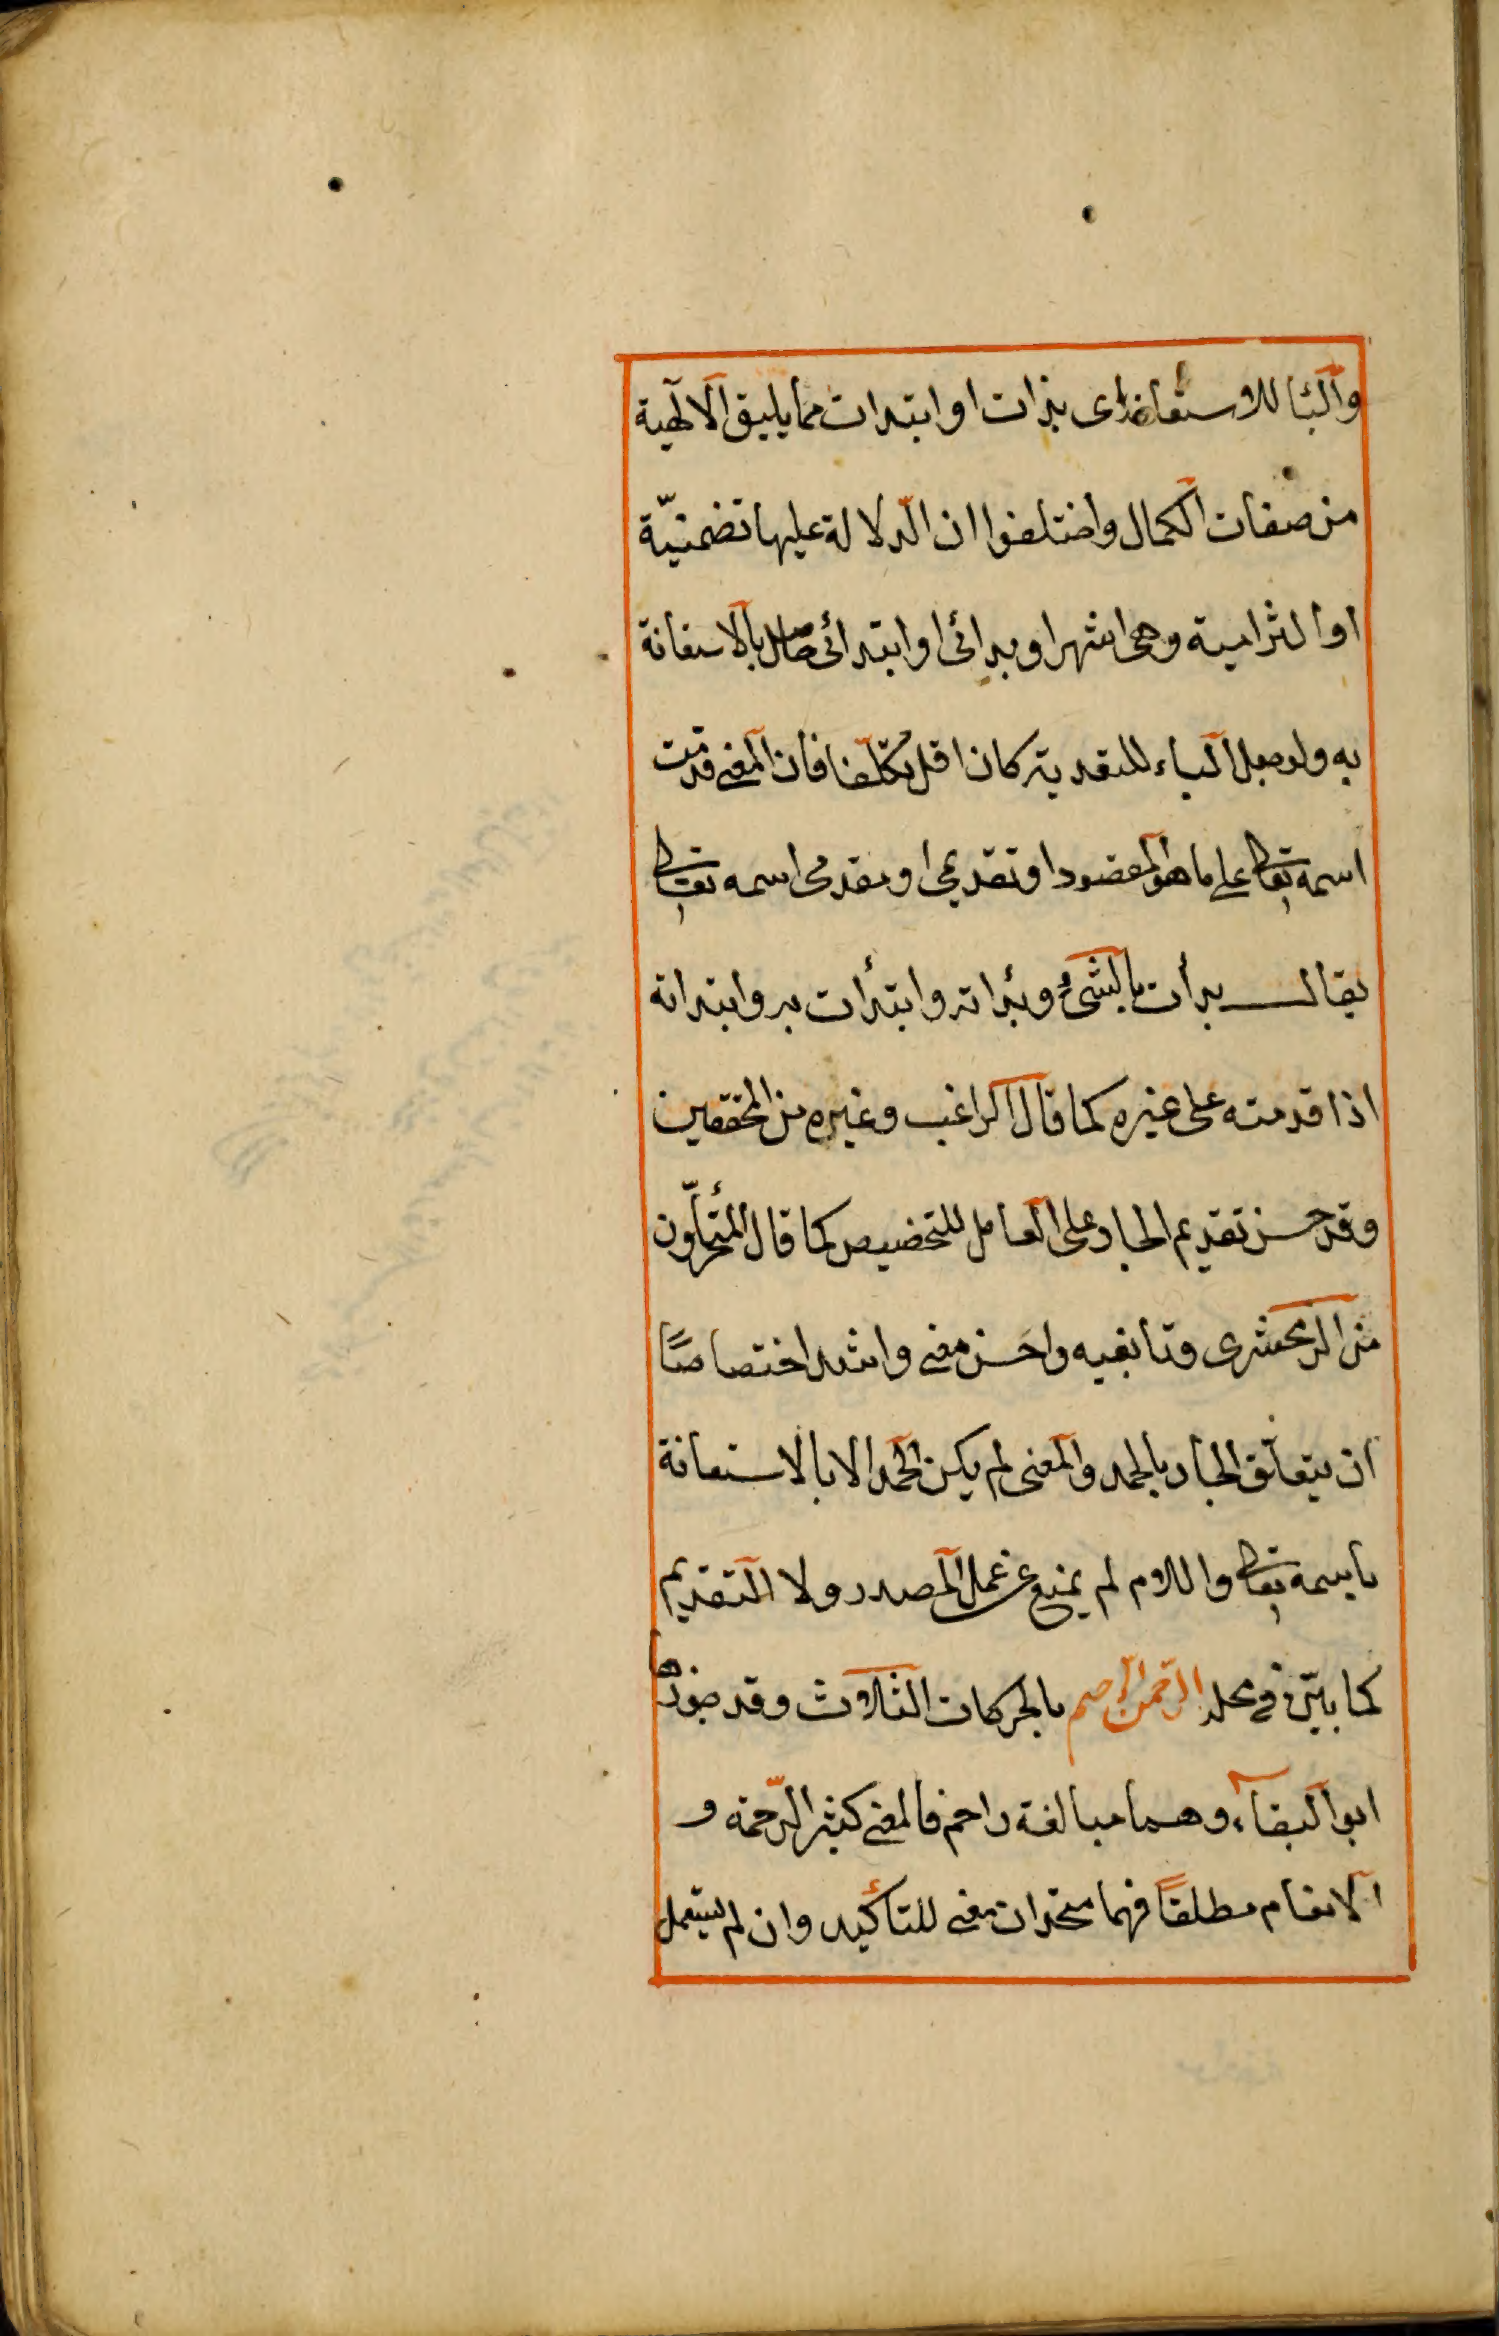 والبا للاستعانة اى بذات او ابتدات مما يليق الآلهية
من صفات الكمال واختلفوا ان الدّلالة عليها تضمنيّة
او التزامية وهى اشهر او بدائى او ابتدائى حاصل بالاستعانة
به ولو جعل الباء للتعدية كان اقل تكلّفا فان المعنى قدّمت
اسمه تعالى على ما هو المقصود او تقديمى او مقدمى اسمه تعالى
يقال بدأت بالشئ وبدأته وابتدأت به وابتداته
اذا قدمته على غيره كما قال الراغب وغيره من المحققين
وقد حسن تقديم الجار على العامل للتخصيص كما قال المتأخّرون
من الزمخشرى وتابعيه واحسن معنى واشد اختصاصًا
ان يتعلّق الجار بالحمد والمعنى لم يكن الحمد الا بالاستعانة
باسمه تعالى واللام لم يمنع عن عمل المصدر ولا التقديم
كما بيّن فى محله الرّحمن الرّحيم بالحركات الثلاث وقد جوزها
ابو البقاء وهما مبالغة راحم فالمعنى كثير الرّحمة و
الانعام مطلقًا فهما متحدان معنى للتأكيد وان لم يستعمل